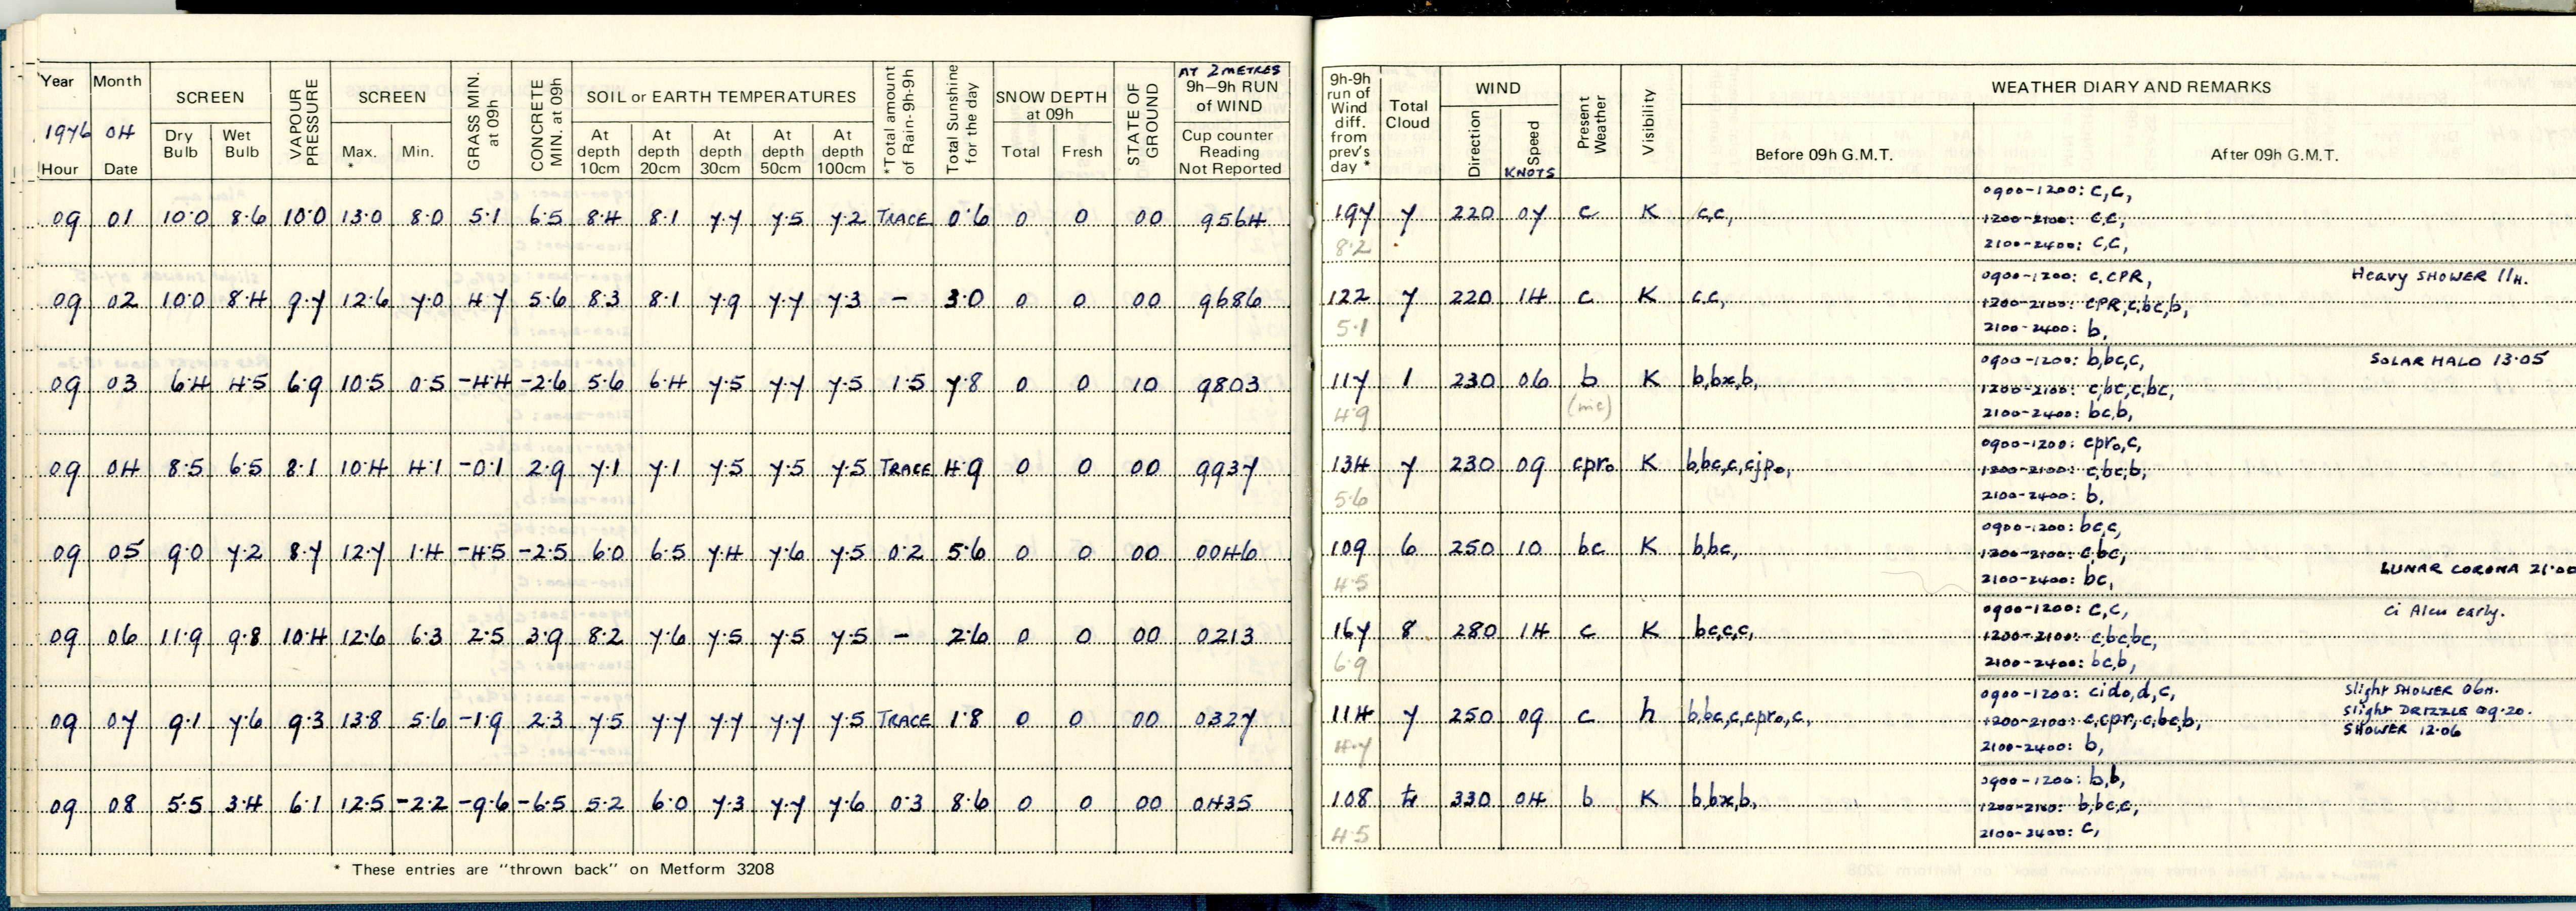 Year Month SCREEN VAPOUR PRESSURE SCREEN GRASS MIN. at 09h CONCRETE MIN. at 09h SOIL or EARTH TEMPERATURES *Total amount of Rain-9h-9h Total Sunshine for the day SNOW DEPTH at 09h STATE OF GROUND AT 2 METRES 9h–9h RUN of WIND
1976 04 Dry Bulb Wet Bulb Max. * Min. At depth 10cm At depth 20cm At depth 30cm At depth 50cm At depth 100cm Total Fresh Cup counter Reading Not Reported
Hour Date
09 01 10·0 8·6 10·0 13·0 8·0 5·1 6·5 8·4 8·1 7·7 7·5 7·2 TRACE 0·6 0 0 00 9564
09 02 10·0 8·4 9·7 12·6 7·0 4·7 5·6 8·3 8·1 7·9 7·7 7·3 – 3·0 0 0 00 9686
09 03 6·4 4·5 6·9 10·5 0·5 -4·4 -2·6 5·6 6·4 7·5 7·7 7·5 1·5 7·8 0 0 10 9803
09 04 8·5 6·5 8·1 10·4 4·1 -0·1 2·9 7·1 7·1 7·5 7·5 7·5 TRACE 4·9 0 0 00 9937
09 05 9·0 7·2 8·7 12·7 1·4 -4·5 -2·5 6·0 6·5 7·4 7·6 7·5 0·2 5·6 0 0 00 0046
09 06 11·9 9·8 10·4 12·6 6·3 2·5 3·9 8·2 7·6 7·5 7·5 7·5 – 2·6 0 0 00 0213
09 07 9·1 7·6 9·3 13·8 5·6 -1·9 2·3 7·5 7·7 7·7 7·7 7·5 TRACE 1·8 0 0 00 0327
09 08 5·5 3·4 6·1 12·5 -2·2 -9·6 -6·5 5·2 6·0 7·3 7·7 7·6 0·3 8·6 0 0 00 0435
* These entries are "thrown back" on Metform 3208
9h-9h run of Wind diff. from prev's day * Total Cloud WIND Present Weather Visibility WEATHER DIARY AND REMARKS
Direction Speed KNOTS Before 09h G.M.T. After 09h G.M.T.
0900-1200: c,c,
197 7 220 07 c K c,c, 1200-2100: c,c,
8·2 2100-2400: c,c,
0900-1200: c,cPR, Heavy SHOWER 11H.
122 7 220 14 c K c,c, 1200-2100: cPR,c,bc,b,
5·1 2100-2400: b,
0900-1200: b,bc,c, SOLAR HALO 13·05
117 1 230 06 b K b,bx,b, 1200-2100: c,bc,c,bc,
4·9 (mc) 2100-2400: bc,b,
0900-1200: cpro,c,
134 7 230 09 cpro K b,bc,c,cjpo, 1200-2100: c,bc,b,
5·6 2100-2400: b,
0900-1200: bc,c,
109 6 250 10 bc K b,bc, 1200-2100: c,bc,
4·5 2100-2400: bc, LUNAR CORONA 21·00
0900-1200: c,c, Ci Alcu early.
167 8 280 14 c K bc,c,c, 1200-2100: c,bc,bc,
6·9 2100-2400: bc,b,
0900-1200: cido,d,c, Slight SHOWER 06H.
114 7 250 09 c h b,bc,c,cpro,c, 1200-2100: c,cpr,c,bc,b, Slight DRIZZLE 09·20.
4·7 2100-2400: b, SHOWER 12·06
0900-1200: b,b,
108 tr 330 04 b K b,bx,b, 1200-2100: b,bc,c,
4·5 2100-2400: c,